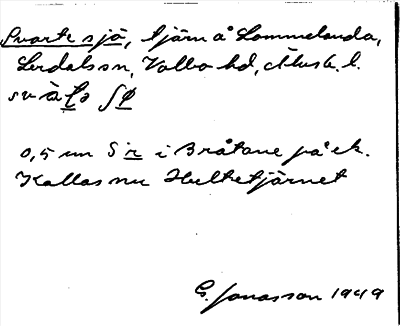 Svarte sjö, tjärn å Lommelanda,
Lerdals sn, Valbo hd, Älvsb. l.
0,5 mm S r i Bråtane på ek.
Kallas nu Hultetjärnet
G. Jonasson 1949